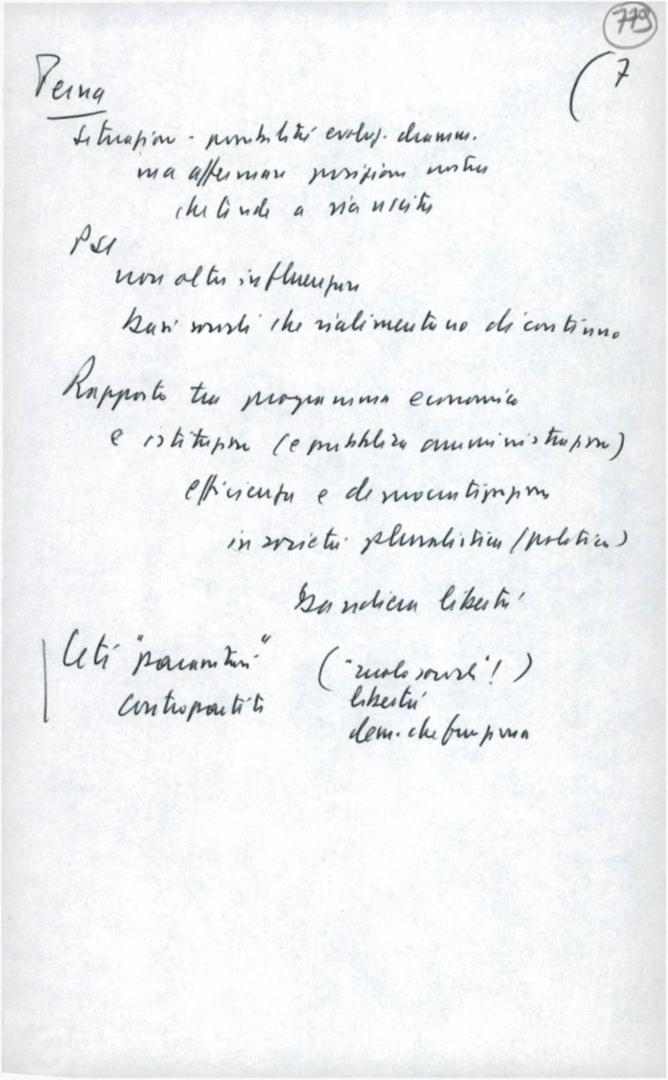 779
(7
Perna
Situazion - possibilità evoluz. dramm.
ma affermare posizioni nostre
che tende a via uscita
PSI
non altre influenzare
basi sociali che rialimentano di continuo
Rapporto tra programma economico
e istituzioni (e pubblica amministrazione)
efficienza e democratizzazione
in società pluralistica (politica)
Bandiera libertà
Ceti "parassitari" ("ruolo sociale"!)
contropartiti libertà
dem. che funziona